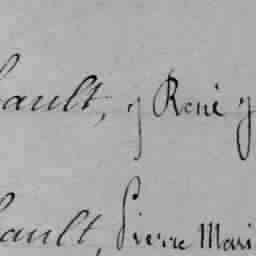 ault, y René y
ault, Pierre Mari